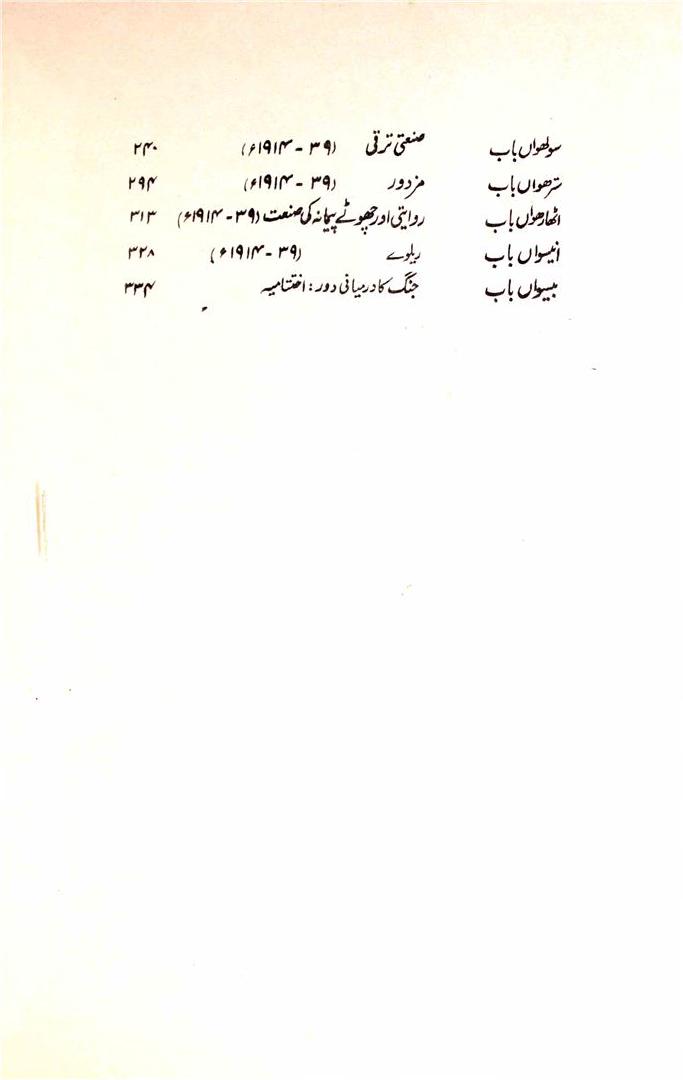 سولھواں باب صنعتی ترقی (۳۹ - ۱۹۱۴ء) ۲۴۰
سترھواں باب مزدور (۳۹ - ۱۹۱۴ء) ۲۹۴
اٹھارھواں باب روایتی اور چھوٹے پیمانہ کی صنعت (۳۹ - ۱۹۱۴ء) ۳۱۳
انیسواں باب ریلوے (۳۹ - ۱۹۱۴ء) ۳۲۸
بیسواں باب جنگ کا درمیانی دور : اختتامیہ ۳۳۴